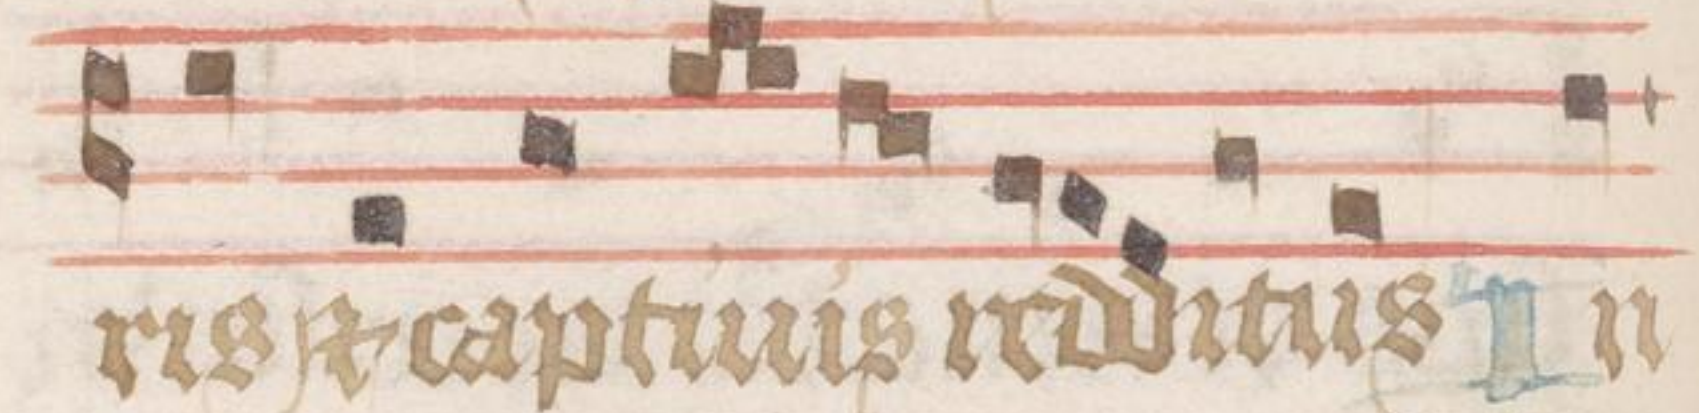 ris ⁊ captiuis redditus I n